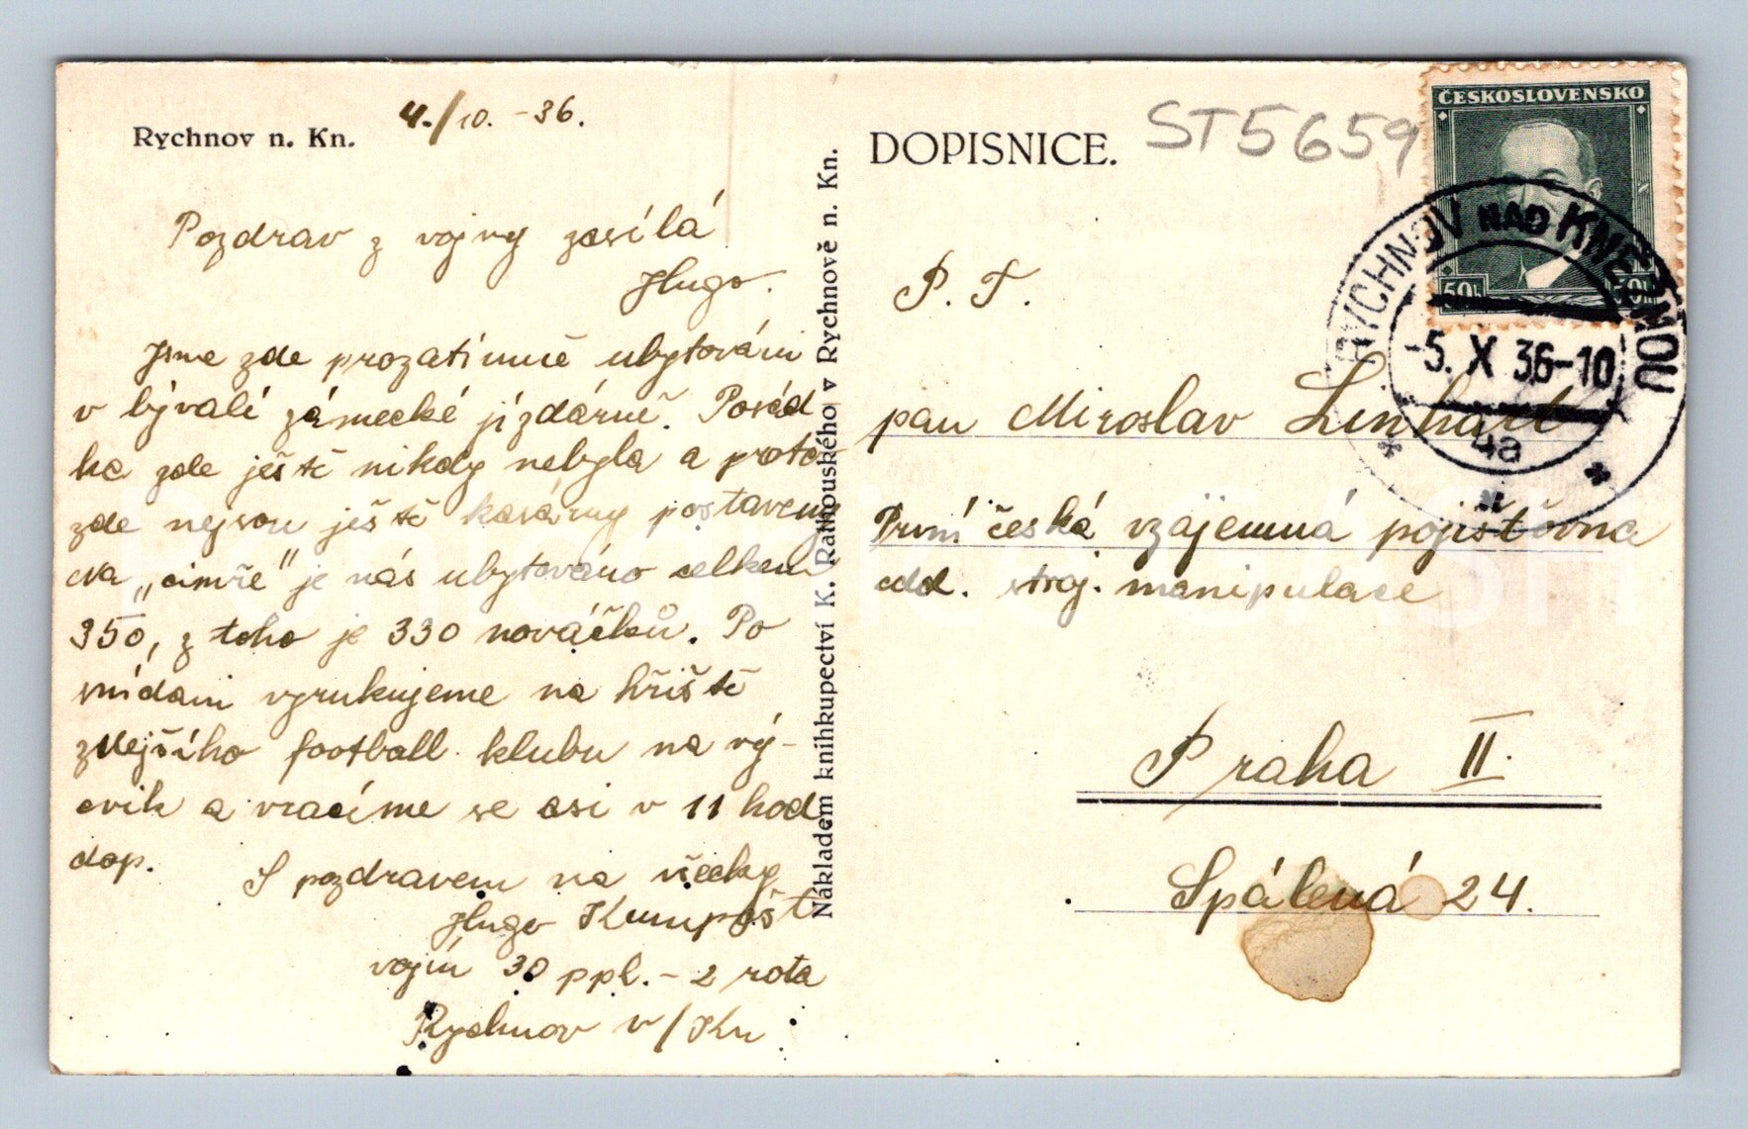 Rychnov n. Kn.
4./10. - 36.
Pozdrav z vojny zasílá
Hugo.
Jsme zde prozatimně ubytováni
v bývalé zámecké jízdárně. Posád
ka zde ještě nikdy nebyla a proto
zde nejsou ještě kasárny postaveny
na „cimře" je nás ubytováno celkem
350, z toho je 330 nováčků. Po
snídani vyrukujeme na hřiště
zdejšího football klubu na vý-
cvik a vracíme se asi v 11 hod
dop.
S pozdravem na všecky
Hugo Kumpošt
vojín 30 ppl. - 2 rota
Rychnov v/Kn
Nákladem knihkupectví K. Rathouského v Rychnově n. Kn.
DOPISNICE.
ST5659
ČESKOSLOVENSKO
50h 50h
RYCHNOV NAD KNĚŽNOU
-5. X 36-10
4a
P. T.
pan Miroslav Linhart
První česká vzájemná pojišťovna
odd. stroj. manipulace
Praha II.
Spálená 24.